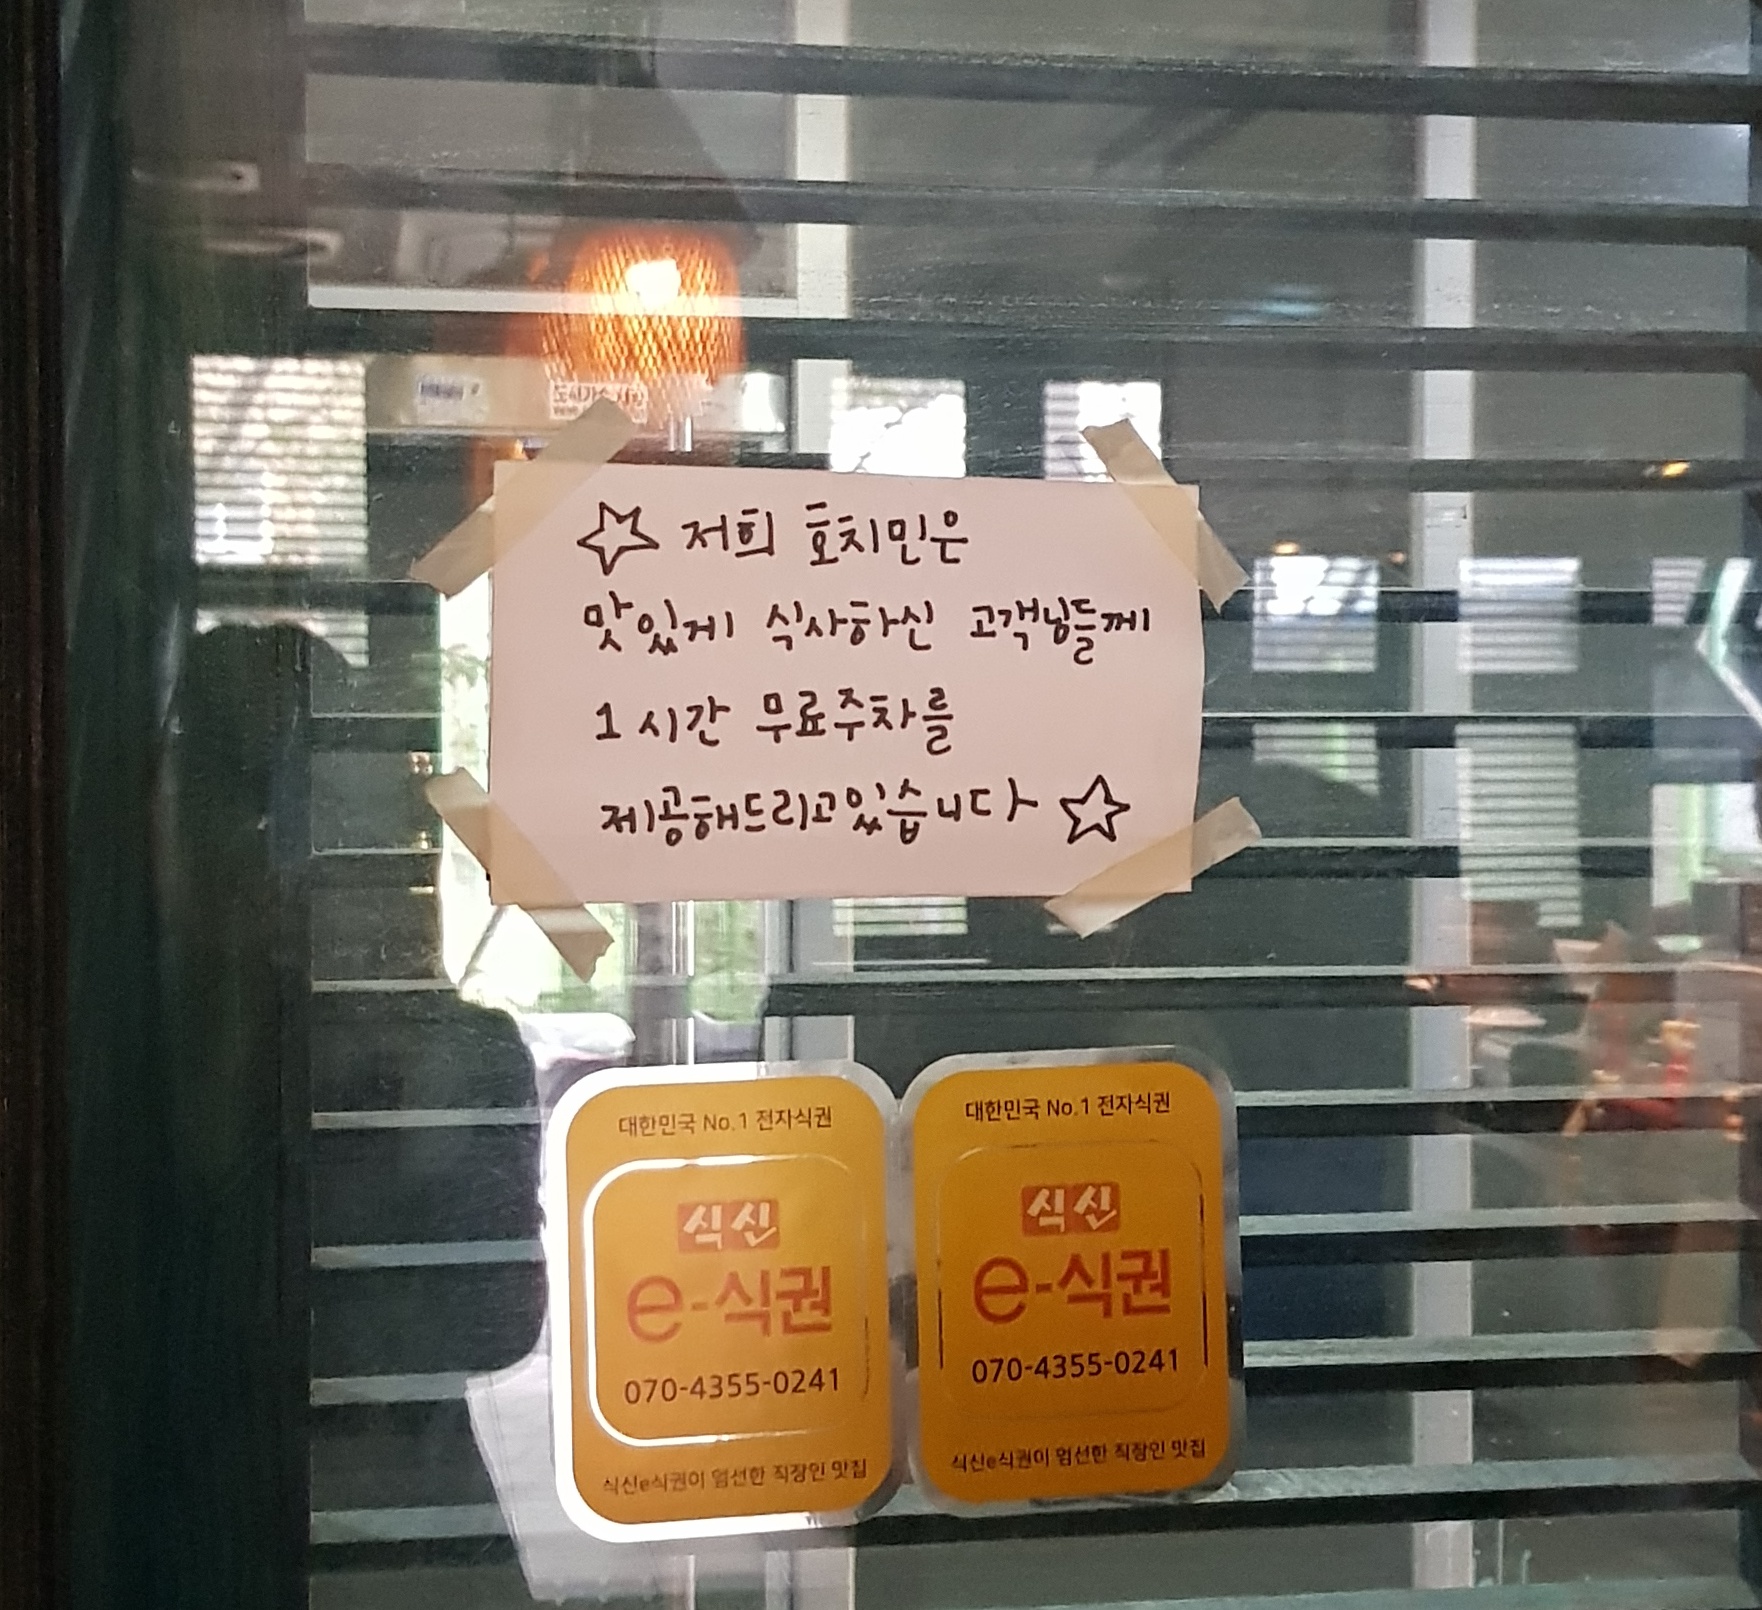 ☆ 저희 호치민은
맛있게 식사하신 고객님들께
1시간 무료주차를
제공해드리고있습니다 ☆
대한민국 No.1 전자식권
식신
e-식권
070-4355-0241
식신e식권이 엄선한 직장인 맛집
대한민국 No.1 전자식권
식신
e-식권
070-4355-0241
식신e식권이 엄선한 직장인 맛집